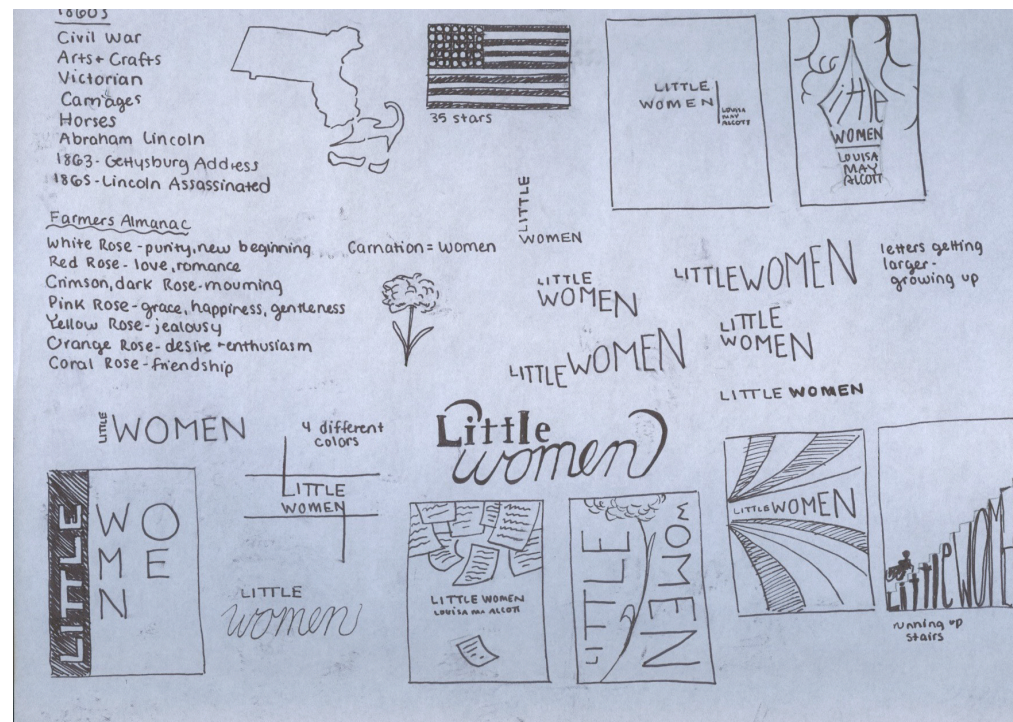 1860s
Civil War
Arts + Crafts
Victorian
Carriages
Horses
Abraham Lincoln
1863 - Gettysburg Address
1865 - Lincoln Assassinated
35 stars
LITTLE
WOMEN
LOUISA
MAY
ALCOTT
little
WOMEN
LOUISA
MAY
ALCOTT
Farmers Almanac
White Rose - purity, new beginning
Red Rose - love, romance
Crimson, dark Rose - mourning
Pink Rose - grace, happiness, gentleness
Yellow Rose - jealousy
Orange Rose - desire + enthusiasm
Coral Rose - friendship
Carnation = Women
LITTLE
WOMEN
LITTLE
WOMEN
LITTLE WOMEN
letters getting
larger -
growing up
LITTLE WOMEN
LITTLE
WOMEN
LITTLE WOMEN
LITTLE WOMEN
4 different
colors
LITTLE
WOMEN
Little
women
LITTLE
WO
ME
N
LITTLE
women
LITTLE WOMEN
LOUISA MAY ALCOTT
LITTLE
WOMEN
LITTLE WOMEN
LITTLE WOME
running up
stairs